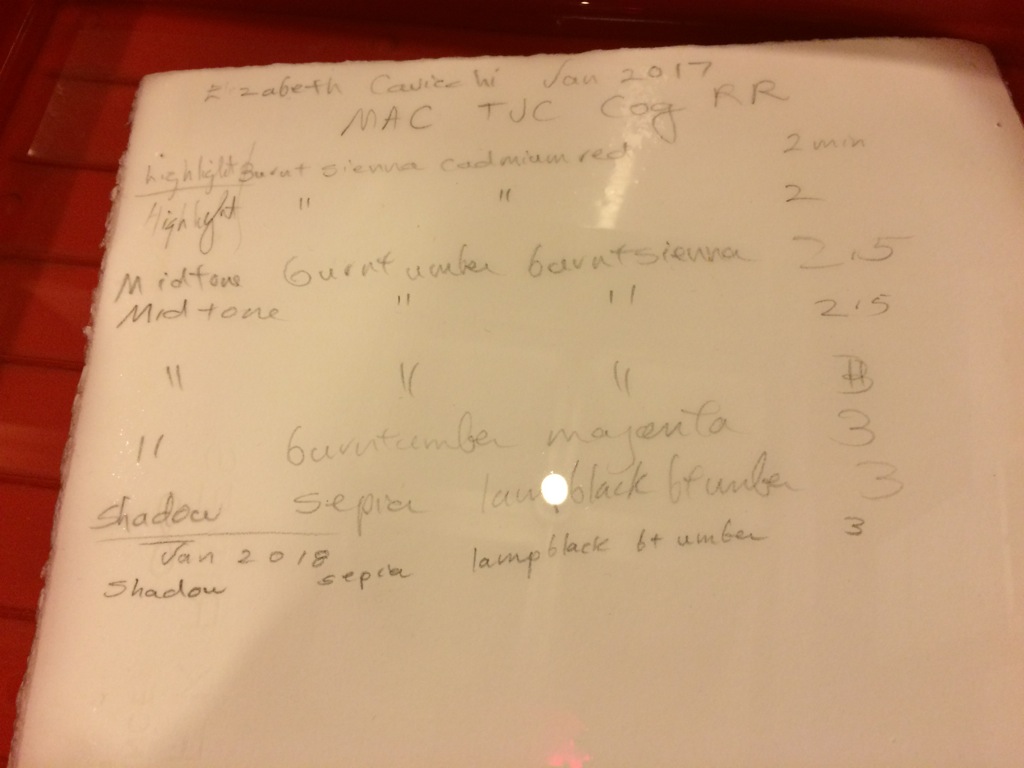 Elizabeth Cavicchi Jan 2017
MAC TJC Cog RR
highlight Burnt sienna cadmium red 2 min
Highlight " " 2
Midtone burnt umber burnt sienna 2.5
Midtone " " 2.5
" " "
" burnt umber magenta 3
Shadow sepia lampblack bt umber 3
Jan 2018
Shadow sepia lampblack bt umber 3